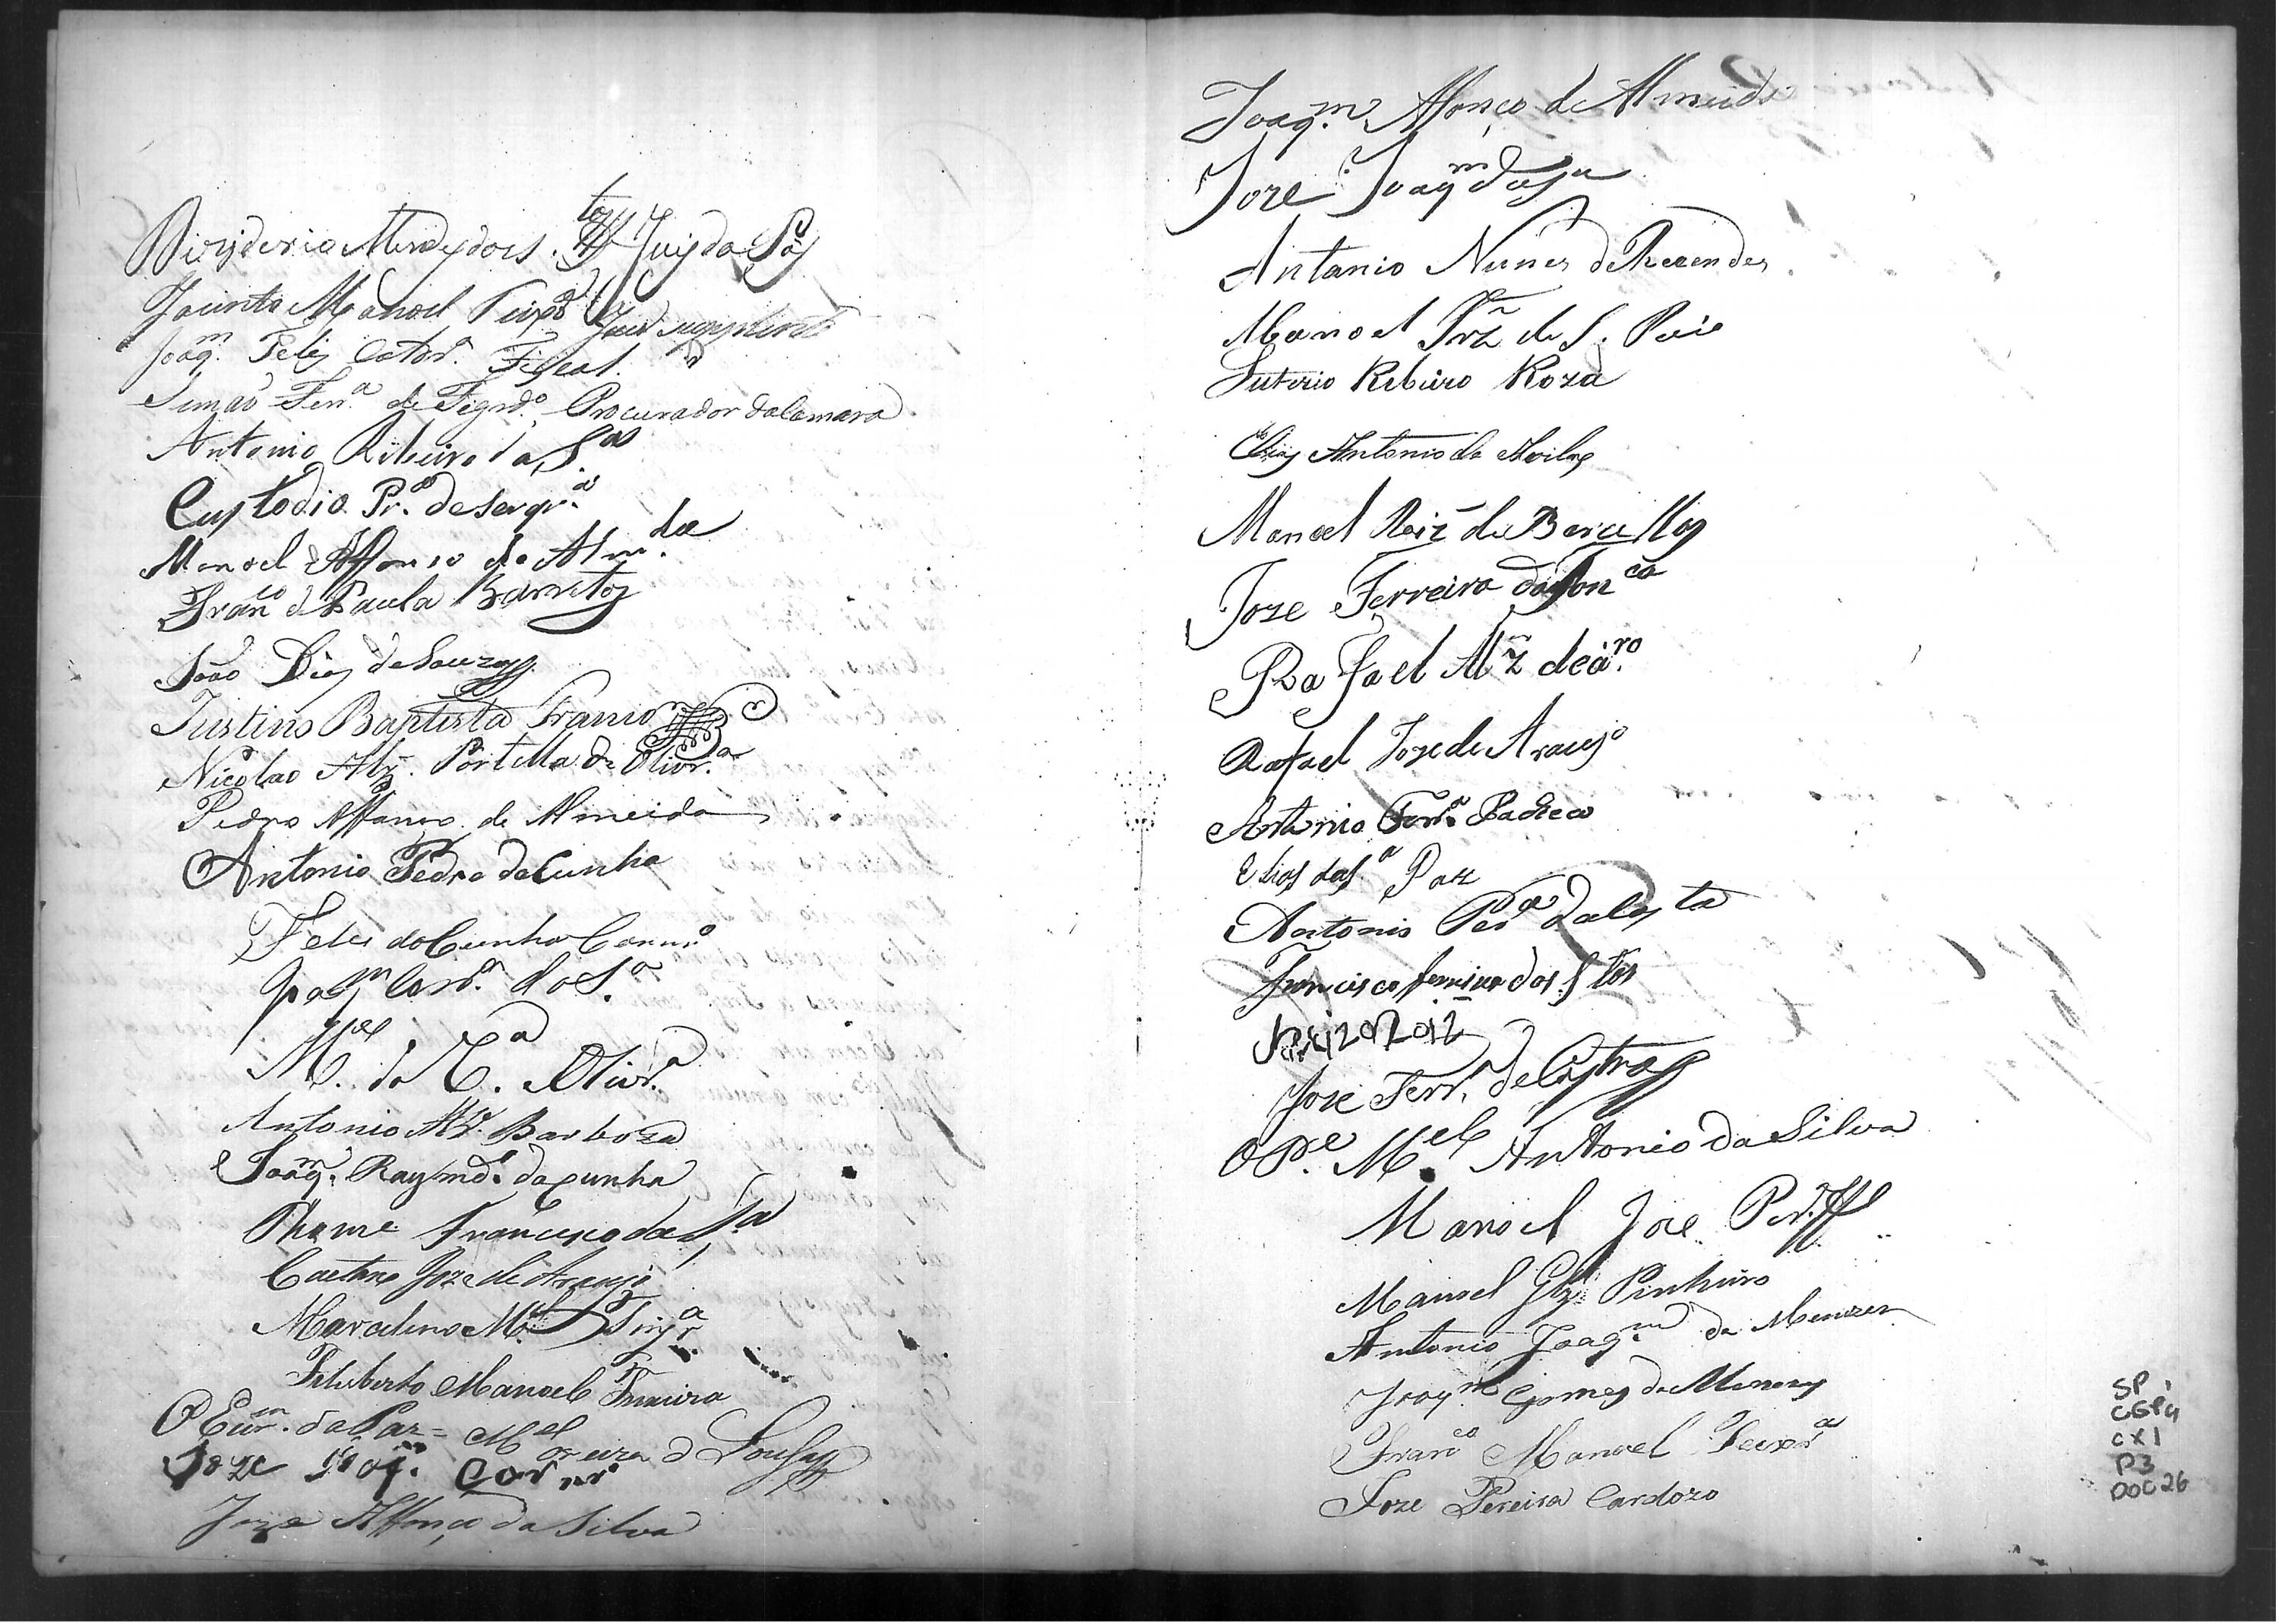 Mendes dos S.tos Juis da Pas
Jacinto Manoel Juis suplente
Joaq.m Felis Fiscal.
Simaõ Ferr.a de Figrd.o Procurador da Camara
Antonio Ribeiro da S.a
Custodio Pr.a de Serqr.a
Manoel Affonso de Alm.da
Fran.co de Paula Barretos
João Dias de Souza
Justino Baptista Franco
Nicolao Alz. Portella de Olivr.a
Pedro Affonso de Almeida
Antonio Pedro da Cunha
Felis da Cunha
Joaq.m Card.o da S.a
M.el da C.a Olivr.a
Antonio Alz. Barboza
Joaq.m Raymd.o da Cunha
Thome Francisco da S.a
Caetano Joze de Araujo
Marcelino M.el
Feliberto Manoel Ferreira
O Escr.m da Paz = M.el Moreira d Sousa
Joze
Joze Affonço da Silva
Joaq.m Afonço de Almeida
Joze Joaq.m da S.a
Antanio Nunes de Rezendes
Manoel Frz de S. Paio
Ribeiro Roza
Antonio de Avila
Manoel Roiz de Barcellos
Joze Ferreira da Fon.ca
Rafael Alz de
Rafael Joze de Araujo
Antonio Ferr.a Pacheco
Elias da S.a Paz
Antonio Per.a da Costa
Francisco Ferreira dos S.tos
Joze Ferr.a de Castro
O P.e M.el Antonio da Silva
Manoel Joze Per.a
Manoel Glz Pinheiro
Antonio Joaq.m de Menezes
Joaq.m Gomes de Menezes
Fran.co Manoel Teixr.a
Joze Pereira Cardozo
SP
CGP4
CX1
P3
DOC 26